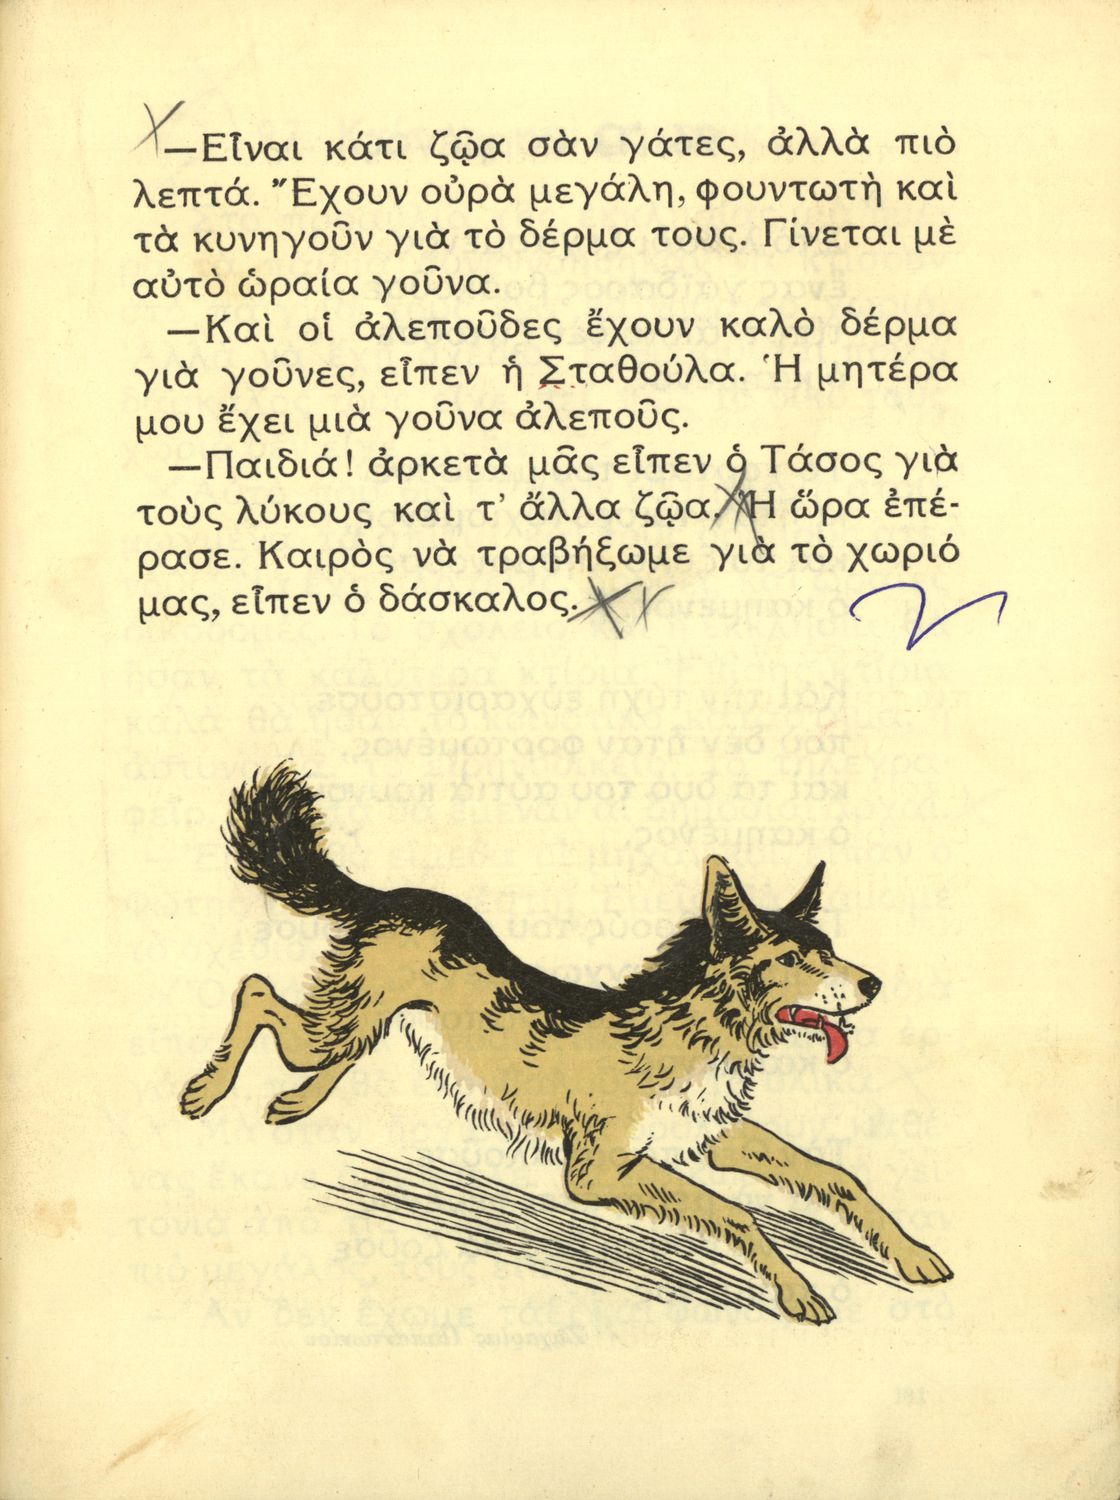 —Εἶναι κάτι ζῷα σὰν γάτες, ἀλλὰ πιὸ
λεπτά. Ἔχουν οὐρὰ μεγάλη, φουντωτὴ καὶ
τὰ κυνηγοῦν γιὰ τὸ δέρμα τους. Γίνεται μὲ
αὐτὸ ὡραία γοῦνα.
—Καὶ οἱ ἀλεποῦδες ἔχουν καλὸ δέρμα
γιὰ γοῦνες, εἶπεν ἡ Σταθούλα. Ἡ μητέρα
μου ἔχει μιὰ γοῦνα ἀλεποῦς.
—Παιδιά! ἀρκετὰ μᾶς εἶπεν ὁ Τάσος γιὰ
τοὺς λύκους καὶ τ' ἄλλα ζῷα. Ἡ ὥρα ἐπέ-
ρασε. Καιρὸς νὰ τραβήξωμε γιὰ τὸ χωριό
μας, εἶπεν ὁ δάσκαλος.